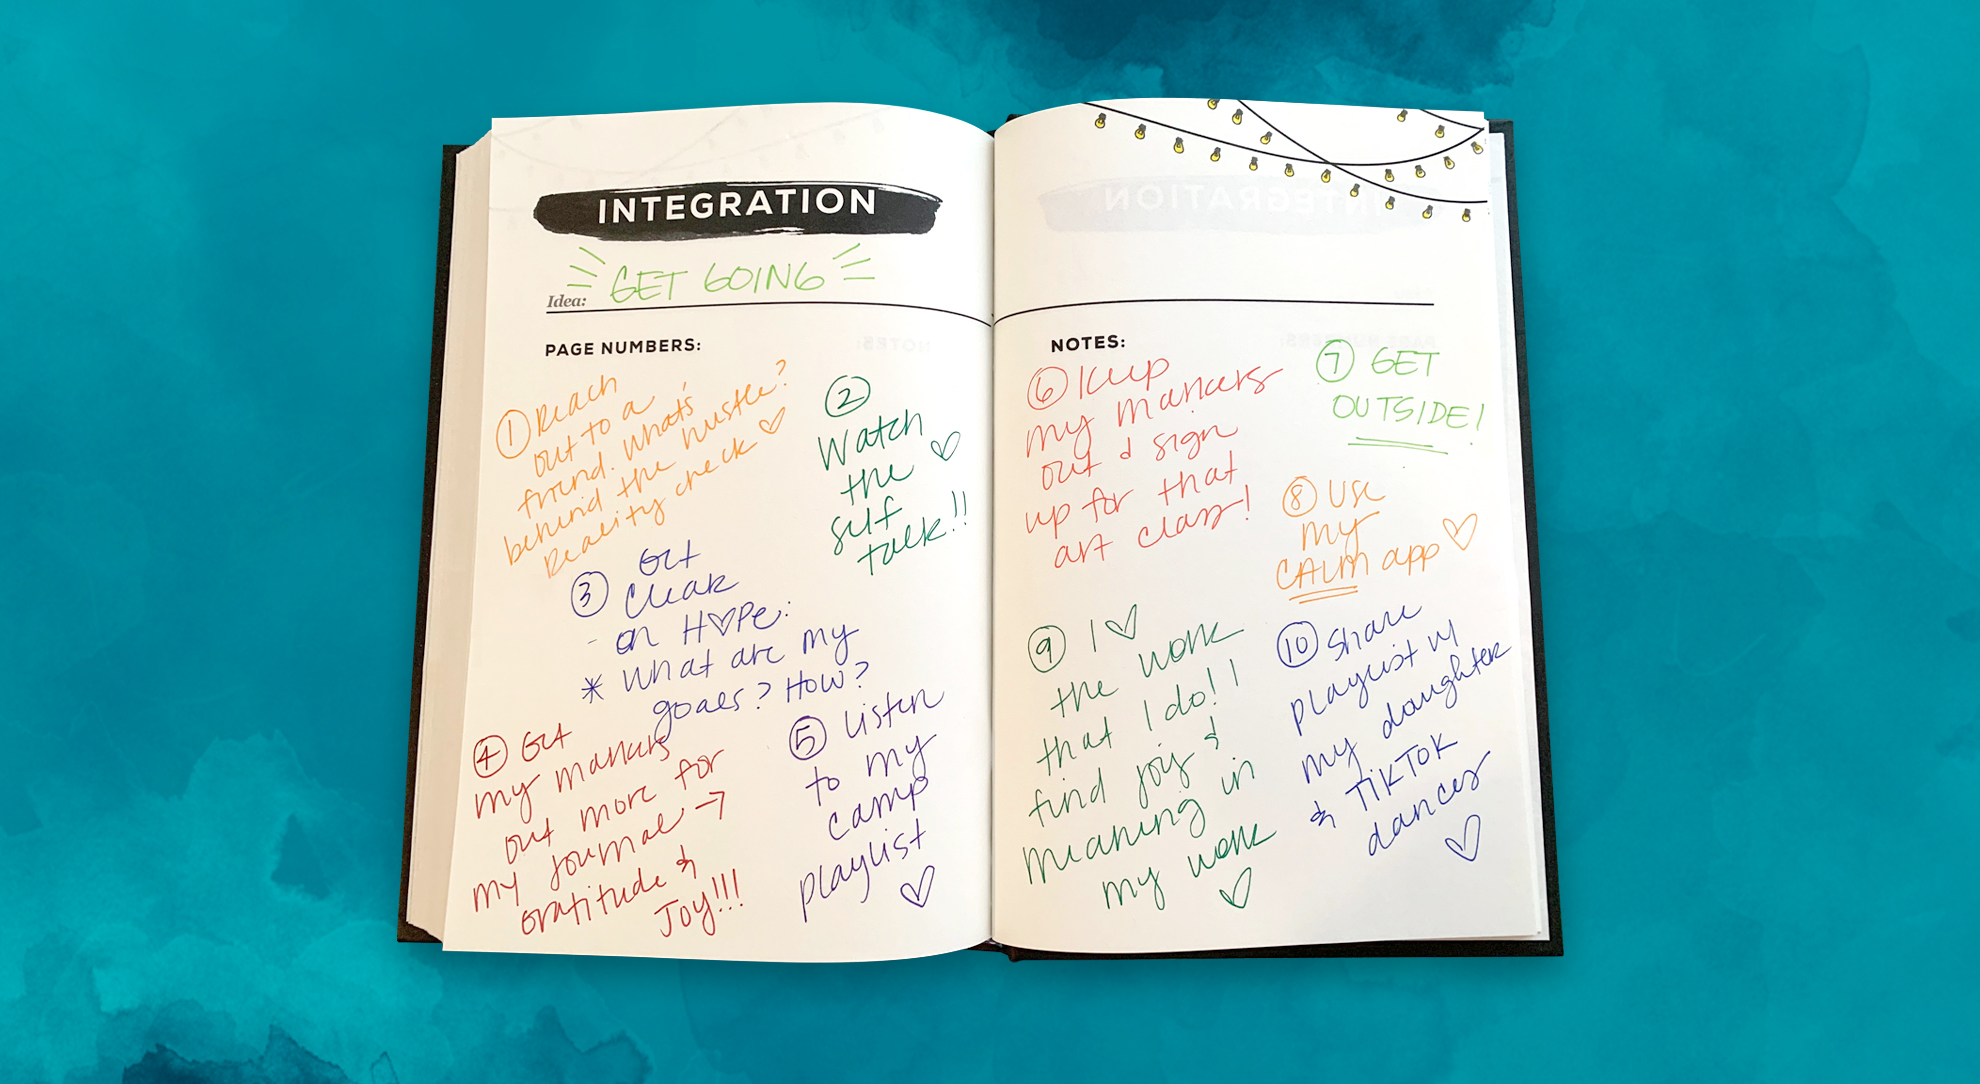 INTEGRATION
Idea: GET GOING
PAGE NUMBERS:
① Reach
out to a
friend. What's
behind the hustle?
Reality check ♡
②
Watch
the ♡
self
talk!!
③ Get
Clear
- on H♡Pe:
* What are my
goals? How?
④ Get
my markers
out more for
my journal →
Gratitude &
Joy!!!
⑤ Listen
to my
camp
playlist
♡
NOTES:
⑥ Keep
my markers
out & sign
up for that
art class!
⑦ GET
OUTSIDE!
⑧ Use
my
CALM app ♡
⑨ I ♡
the work
that I do!!
find joy &
meaning in
my work
♡
⑩ Share
playlist w/
my daughter
& TikTok
dances
♡